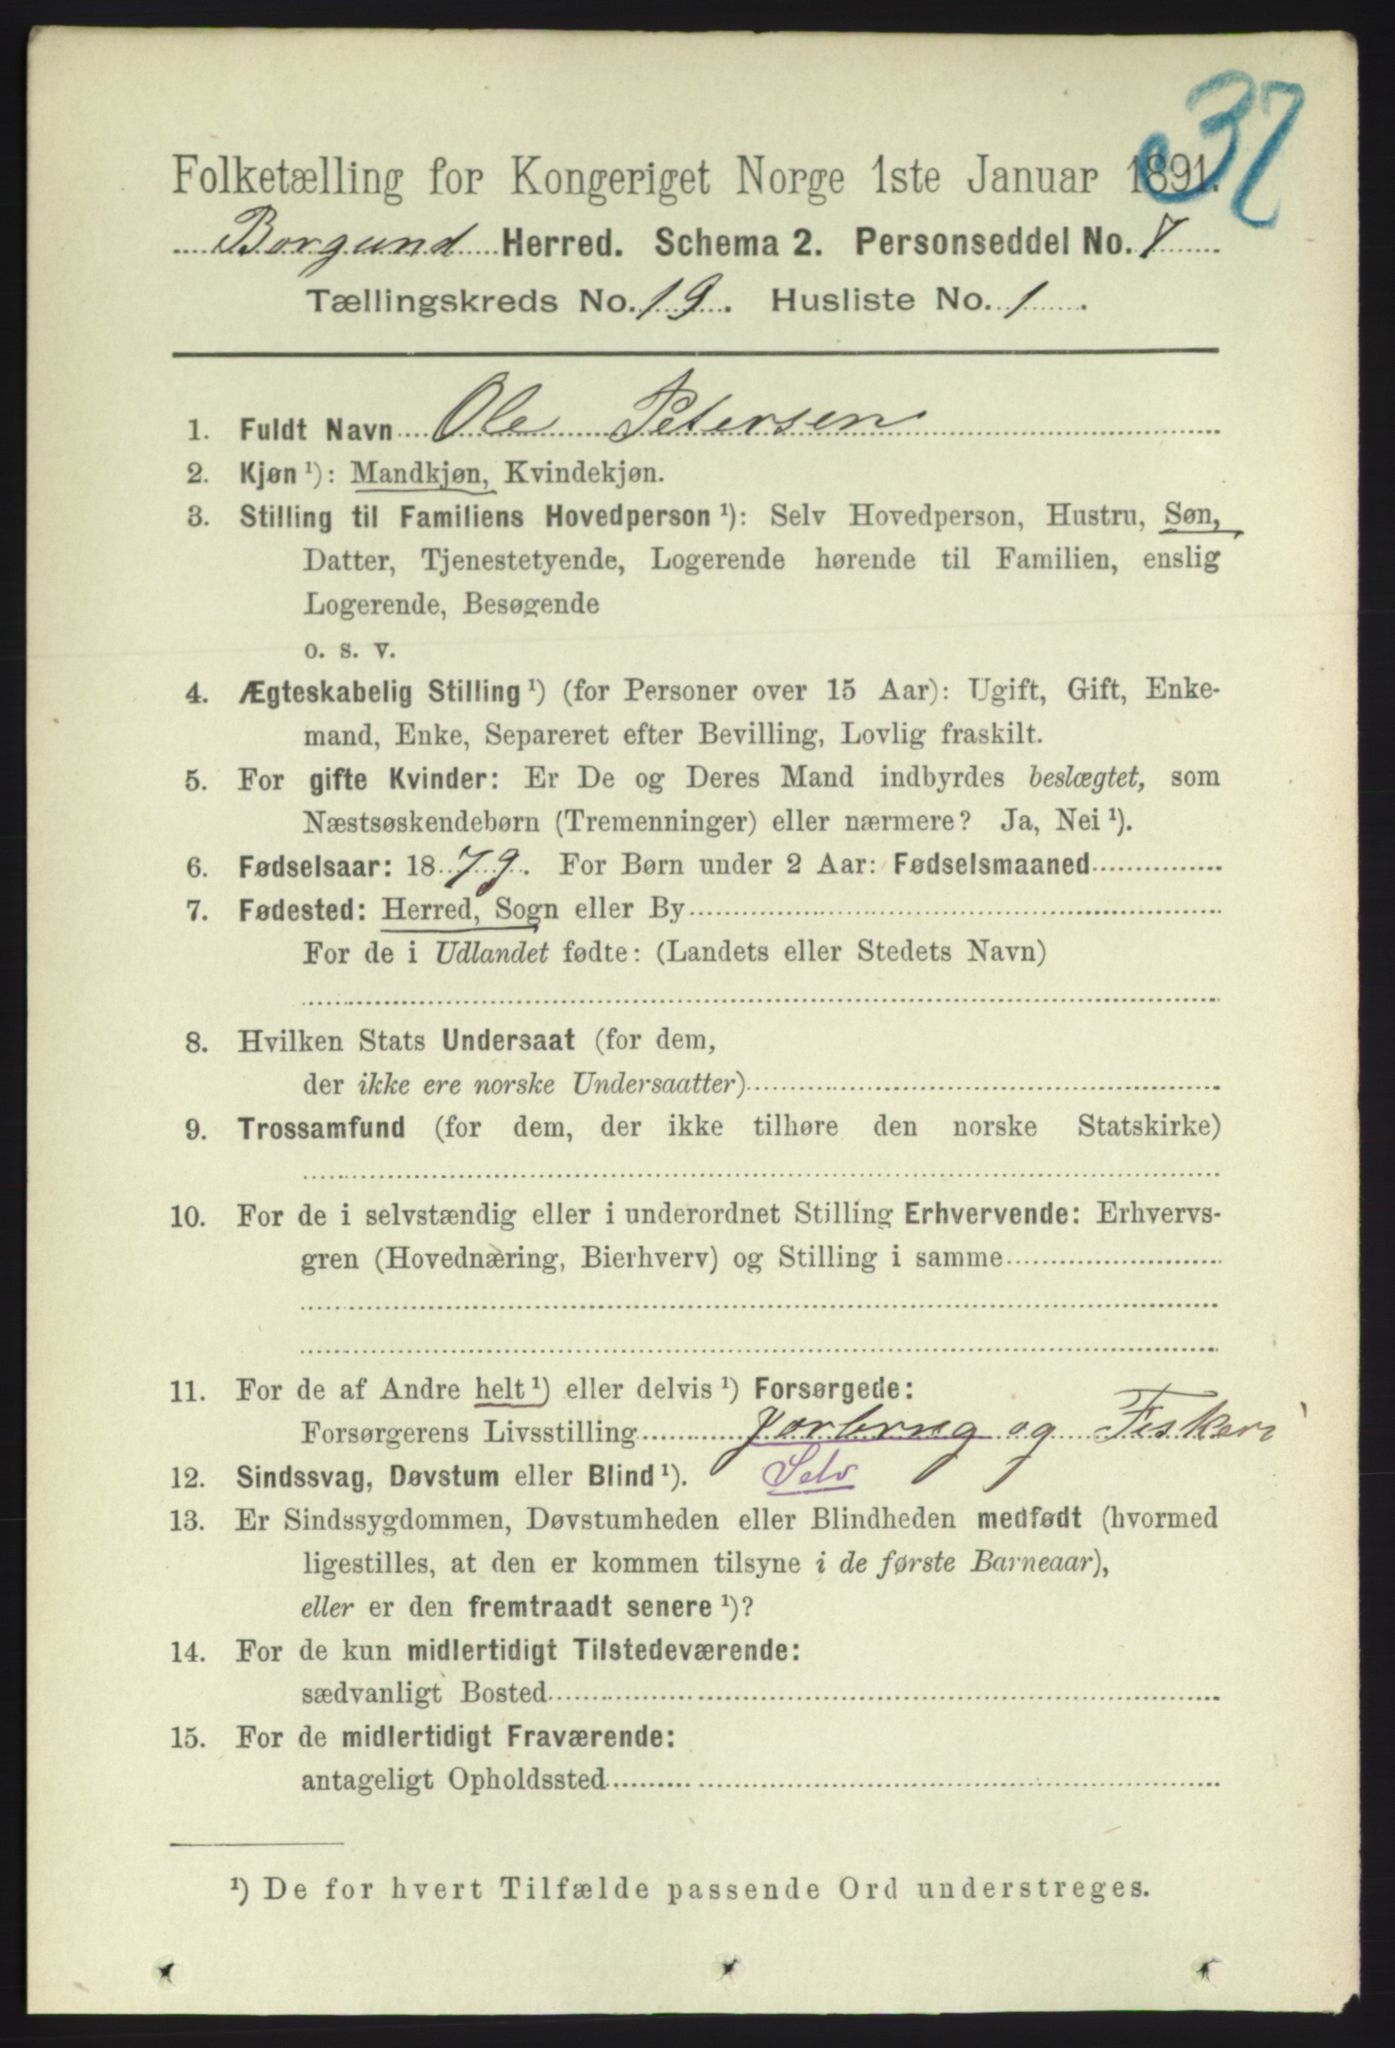 37
Folketælling for Kongeriget Norge 1ste Januar 1891.
Borgund Herred. Schema 2. Personseddel No. 7
Tællingskreds No. 19. Husliste No. 1.
1. Fuldt Navn Ole Petersen
2. Kjøn ¹): Mandkjøn, Kvindekjøn.
3. Stilling til Familiens Hovedperson ¹): Selv Hovedperson, Hustru, Søn,
Datter, Tjenestetyende, Logerende hørende til Familien, enslig
Logerende, Besøgende
o. s. v.
4. Ægteskabelig Stilling ¹) (for Personer over 15 Aar): Ugift, Gift, Enke-
mand, Enke, Separeret efter Bevilling, Lovlig fraskilt.
5. For gifte Kvinder: Er De og Deres Mand indbyrdes beslægtet, som
Næstsøskendebørn (Tremenninger) eller nærmere? Ja, Nei ¹).
6. Fødselsaar: 1879. For Børn under 2 Aar: Fødselsmaaned
7. Fødested: Herred, Sogn eller By
For de i Udlandet fødte: (Landets eller Stedets Navn)
8. Hvilken Stats Undersaat (for dem,
der ikke ere norske Undersaatter)
9. Trossamfund (for dem, der ikke tilhøre den norske Statskirke)
10. For de i selvstændig eller i underordnet Stilling Erhvervende: Erhvervs-
gren (Hovednæring, Bierhverv) og Stilling i samme
11. For de af Andre helt ¹) eller delvis ¹) Forsørgede:
Forsørgerens Livsstilling Jorbrug og Fiskeri
12. Sindssvag, Døvstum eller Blind ¹). Selv
13. Er Sindssygdommen, Døvstumheden eller Blindheden medfødt (hvormed
ligestilles, at den er kommen tilsyne i de første Barneaar),
eller er den fremtraadt senere ¹)?
14. For de kun midlertidigt Tilstedeværende:
sædvanligt Bosted
15. For de midlertidigt Fraværende:
antageligt Opholdssted
¹) De for hvert Tilfælde passende Ord understreges.